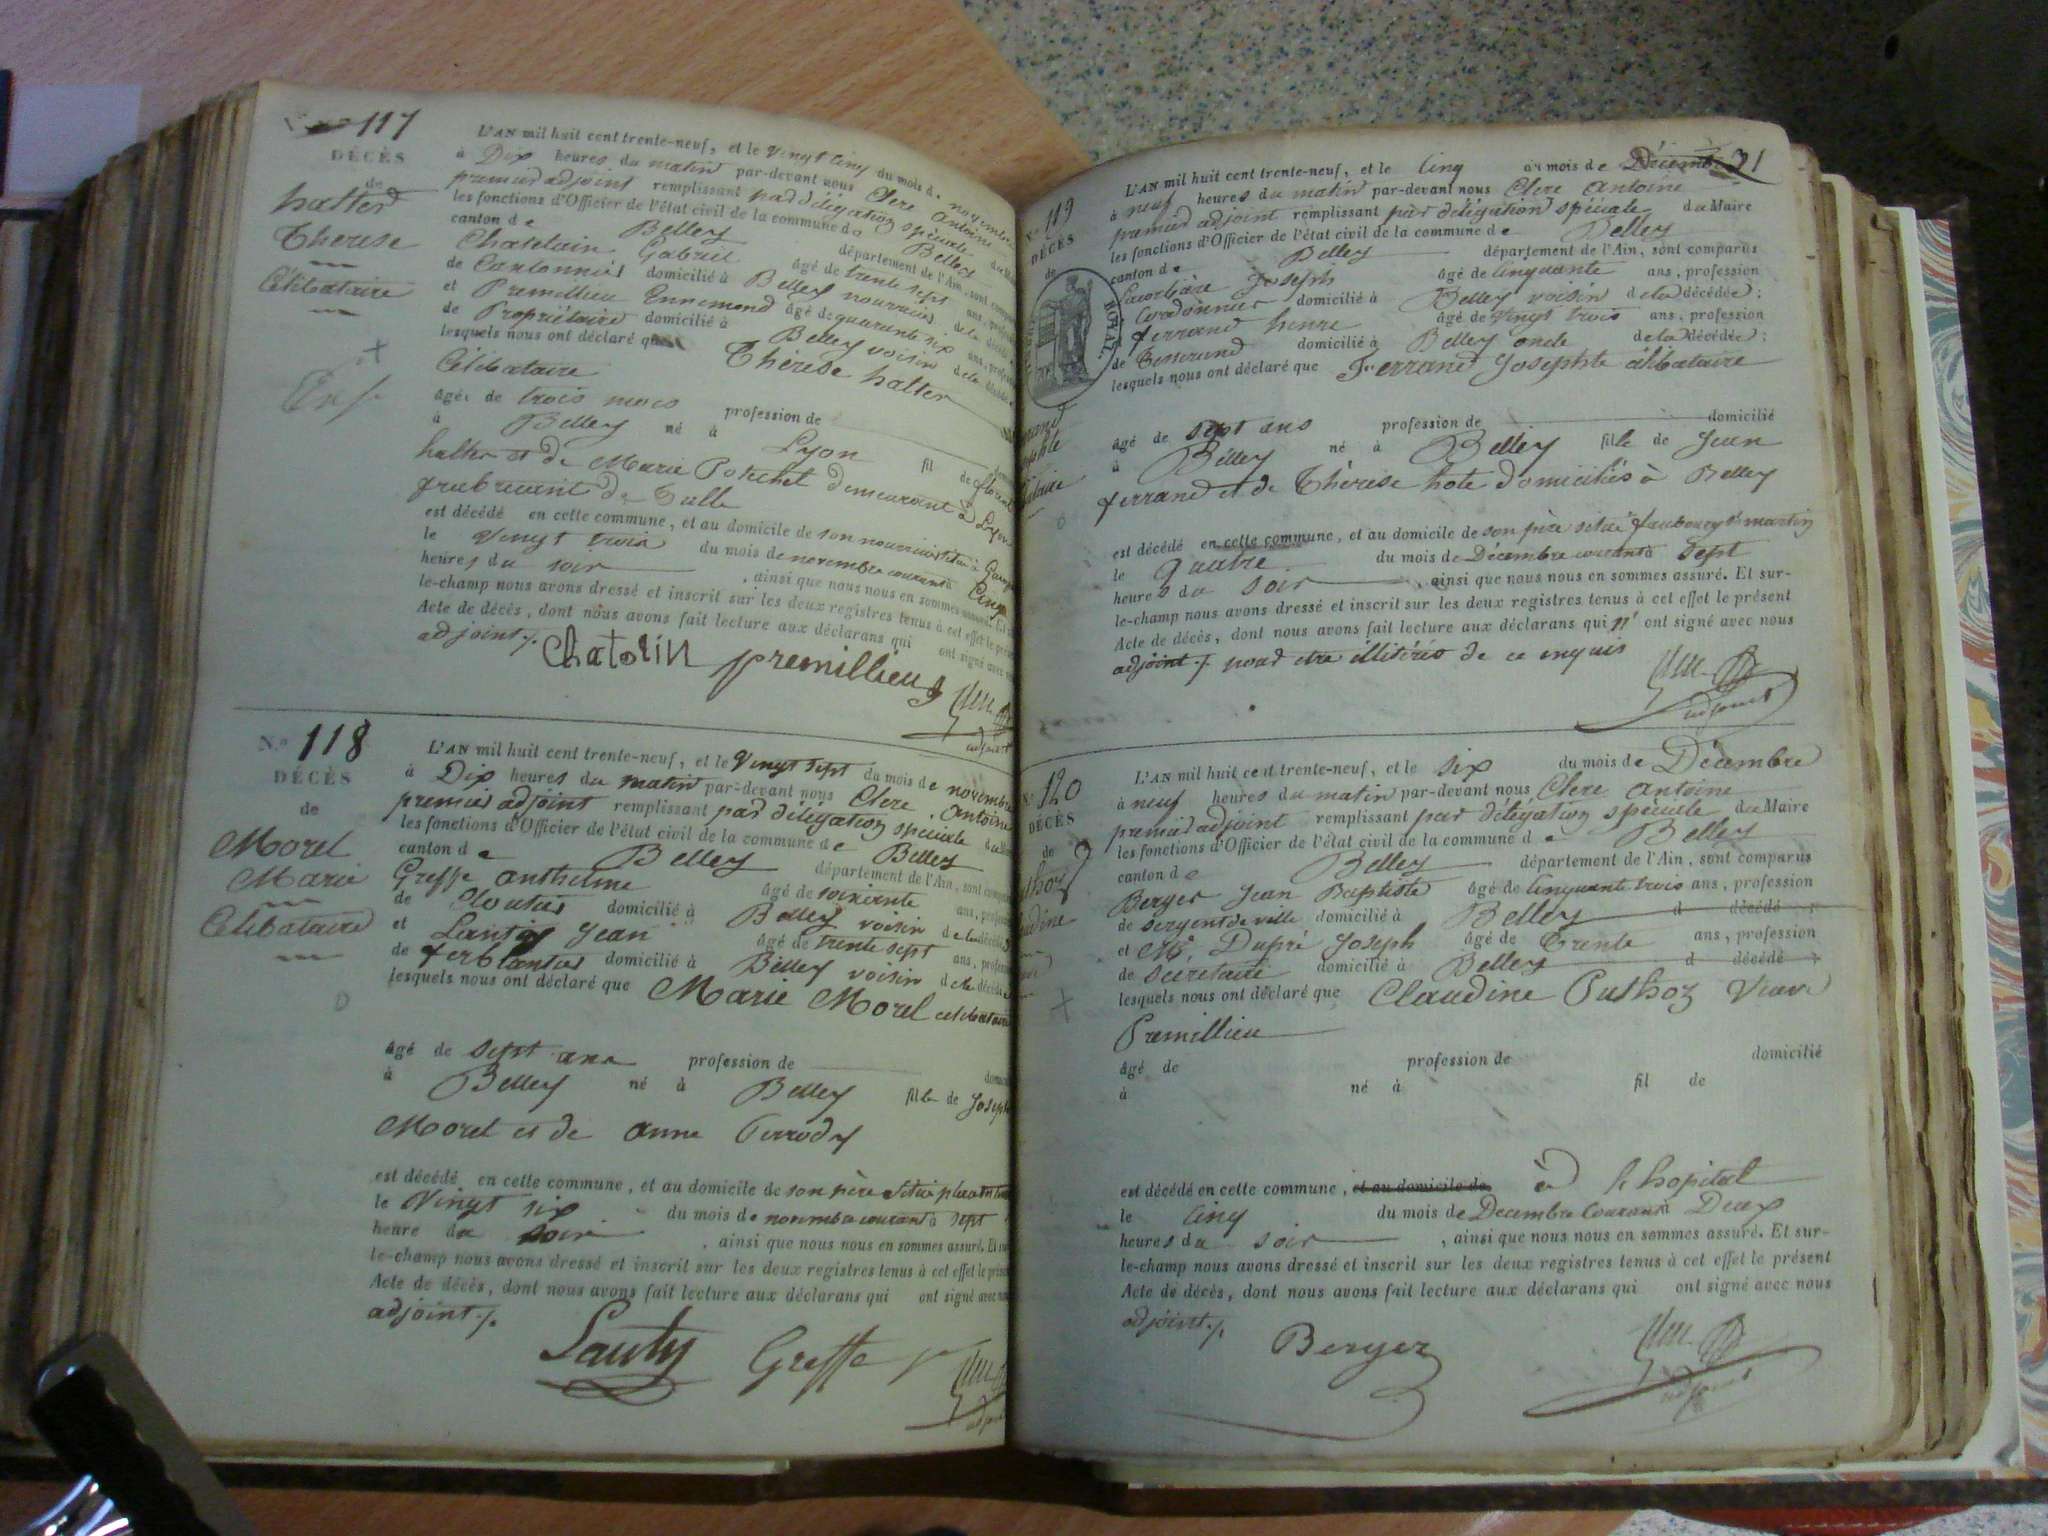 117
DÉCÈS
de
halter
Thérèse
Célibataire
L'AN mil huit cent trente-neuf, et le vingt cinq du mois de novembre
à Dix heures du matin par-devant nous Clerc Antoine
premier adjoint remplissant par délégation spéciale du Maire
les fonctions d'Officier de l'état civil de la commune de Belley
canton de Belley département de l'Ain, sont comparus
Chatelain Gabriel âgé de trente sept ans, profession
de Cantonnier domicilié à Belley nourricier de la décédée
et Premillieu Ennemond âgé de quarante six ans, profession
de Propriétaire domicilié à Belley voisin de la décédée
lesquels nous ont déclaré que Thérèse halter
Célibataire
âgée de trois mois profession de
à Belley né à Lyon fil de florent
halter et de Marie Potechet demeurant à Lyon
fabricant de Tulle
est décédé en cette commune, et au domicile de son nourricier situé à
le vingt trois du mois de novembre courant à Cinq
heures du soir, ainsi que nous nous en sommes assuré. Et sur-
le-champ nous avons dressé et inscrit sur les deux registres tenus à cet effet le présent
Acte de décès, dont nous avons fait lecture aux déclarans qui ont signé avec nous
adjoint ./.
Chatelin premillieu
adjoint
N.º 118
DÉCÈS
de
Morel
Marie
Célibataire
L'AN mil huit cent trente-neuf, et le Vingt sept du mois de novembre
à Dix heures du matin par-devant nous Clerc Antoine
premier adjoint remplissant par délégation spéciale du Maire
les fonctions d'Officier de l'état civil de la commune de Belley
canton de Belley département de l'Ain, sont comparus
Greffe anthelme âgé de soixante ans, profession
de Cloutier domicilié à Belley voisin de la décédée
et Lanty Jean âgé de trente sept ans, profession
de ferblantier domicilié à Belley voisin de la décédée
lesquels nous ont déclaré que Marie Morel célibataire
âgé de sept ans profession de
à Belley né à Belley fille de Joseph
Morel et de anne Perrody
est décédé en cette commune, et au domicile de son père situé place
le Vingt six du mois de novembre courant à sept
heure du soir, ainsi que nous nous en sommes assuré. Et sur-
le-champ nous avons dressé et inscrit sur les deux registres tenus à cet effet le présent
Acte de décès, dont nous avons fait lecture aux déclarans qui ont signé avec nous
adjoint ./.
Lanty Greffe
31
N.º 119
DÉCÈS
de
L'AN mil huit cent trente-neuf, et le Cinq du mois de Décembre
à neuf heures du matin par-devant nous Clerc Antoine
premier adjoint remplissant par délégation spéciale du Maire
les fonctions d'Officier de l'état civil de la commune de Belley
canton de Belley département de l'Ain, sont comparus
Joseph âgé de Cinquante ans, profession
Cordonnier domicilié à Belley voisin de la décédée;
ferrand henri âgé de vingt trois ans, profession
de Tisserand domicilié à Belley oncle de la décédée;
lesquels nous ont déclaré que Ferrand Josephte célibataire
âgé de sept ans profession de domicilié
à Belley né à Belley fille de Jean
ferrand et de Thérèse hote domiciliés à Belley
est décédé en cette commune, et au domicile de son père situé faubourg St martin
le quatre du mois de Décembre courant à sept
heures du soir, ainsi que nous nous en sommes assuré. Et sur-
le-champ nous avons dressé et inscrit sur les deux registres tenus à cet effet le présent
Acte de décès, dont nous avons fait lecture aux déclarans qui n' ont signé avec nous
adjoint ./. pour être illitérés de ce enquis
adjoint
N.º 120
DÉCÈS
de
L'AN mil huit cent trente-neuf, et le six du mois de Décembre
à neuf heures du matin par-devant nous Clerc Antoine
premier adjoint remplissant par délégation spéciale du Maire
les fonctions d'Officier de l'état civil de la commune de Belley
canton de Belley département de l'Ain, sont comparus
Berger Jean Baptiste âgé de Cinquante trois ans, profession
de sergent de ville domicilié à Belley d décédé
et Mr. Dupré Joseph âgé de Trente ans, profession
de secretaire domicilié à Belley d décédé
lesquels nous ont déclaré que Claudine Puthoz veuve
Premillieu
âgé de profession de domicilié
à né à fil de
est décédé en cette commune, et au domicile de à l'hopital
le cinq du mois de Décembre courant à Deux
heures du soir, ainsi que nous nous en sommes assuré. Et sur-
le-champ nous avons dressé et inscrit sur les deux registres tenus à cet effet le présent
Acte de décès, dont nous avons fait lecture aux déclarans qui ont signé avec nous
adjoint ./.
Berger
adjoint